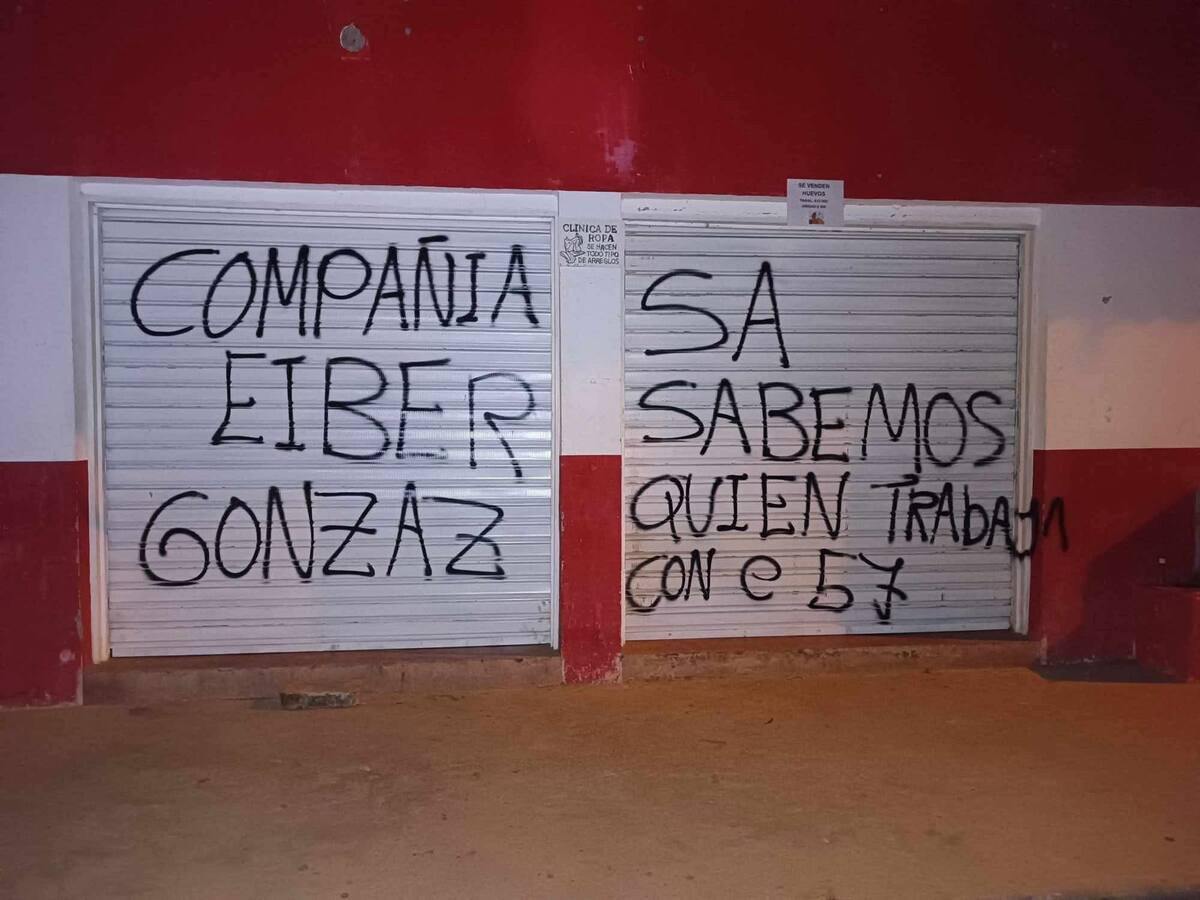 COMPAÑIA
EIBER
GONZAZ
CLINICA DE
ROPA
SE HACEN
TODO TIPO
DE ARREGLOS
SE VENDEN
HUEVOS
SA
SABEMOS
QUIEN TRABAJA
CON e 57